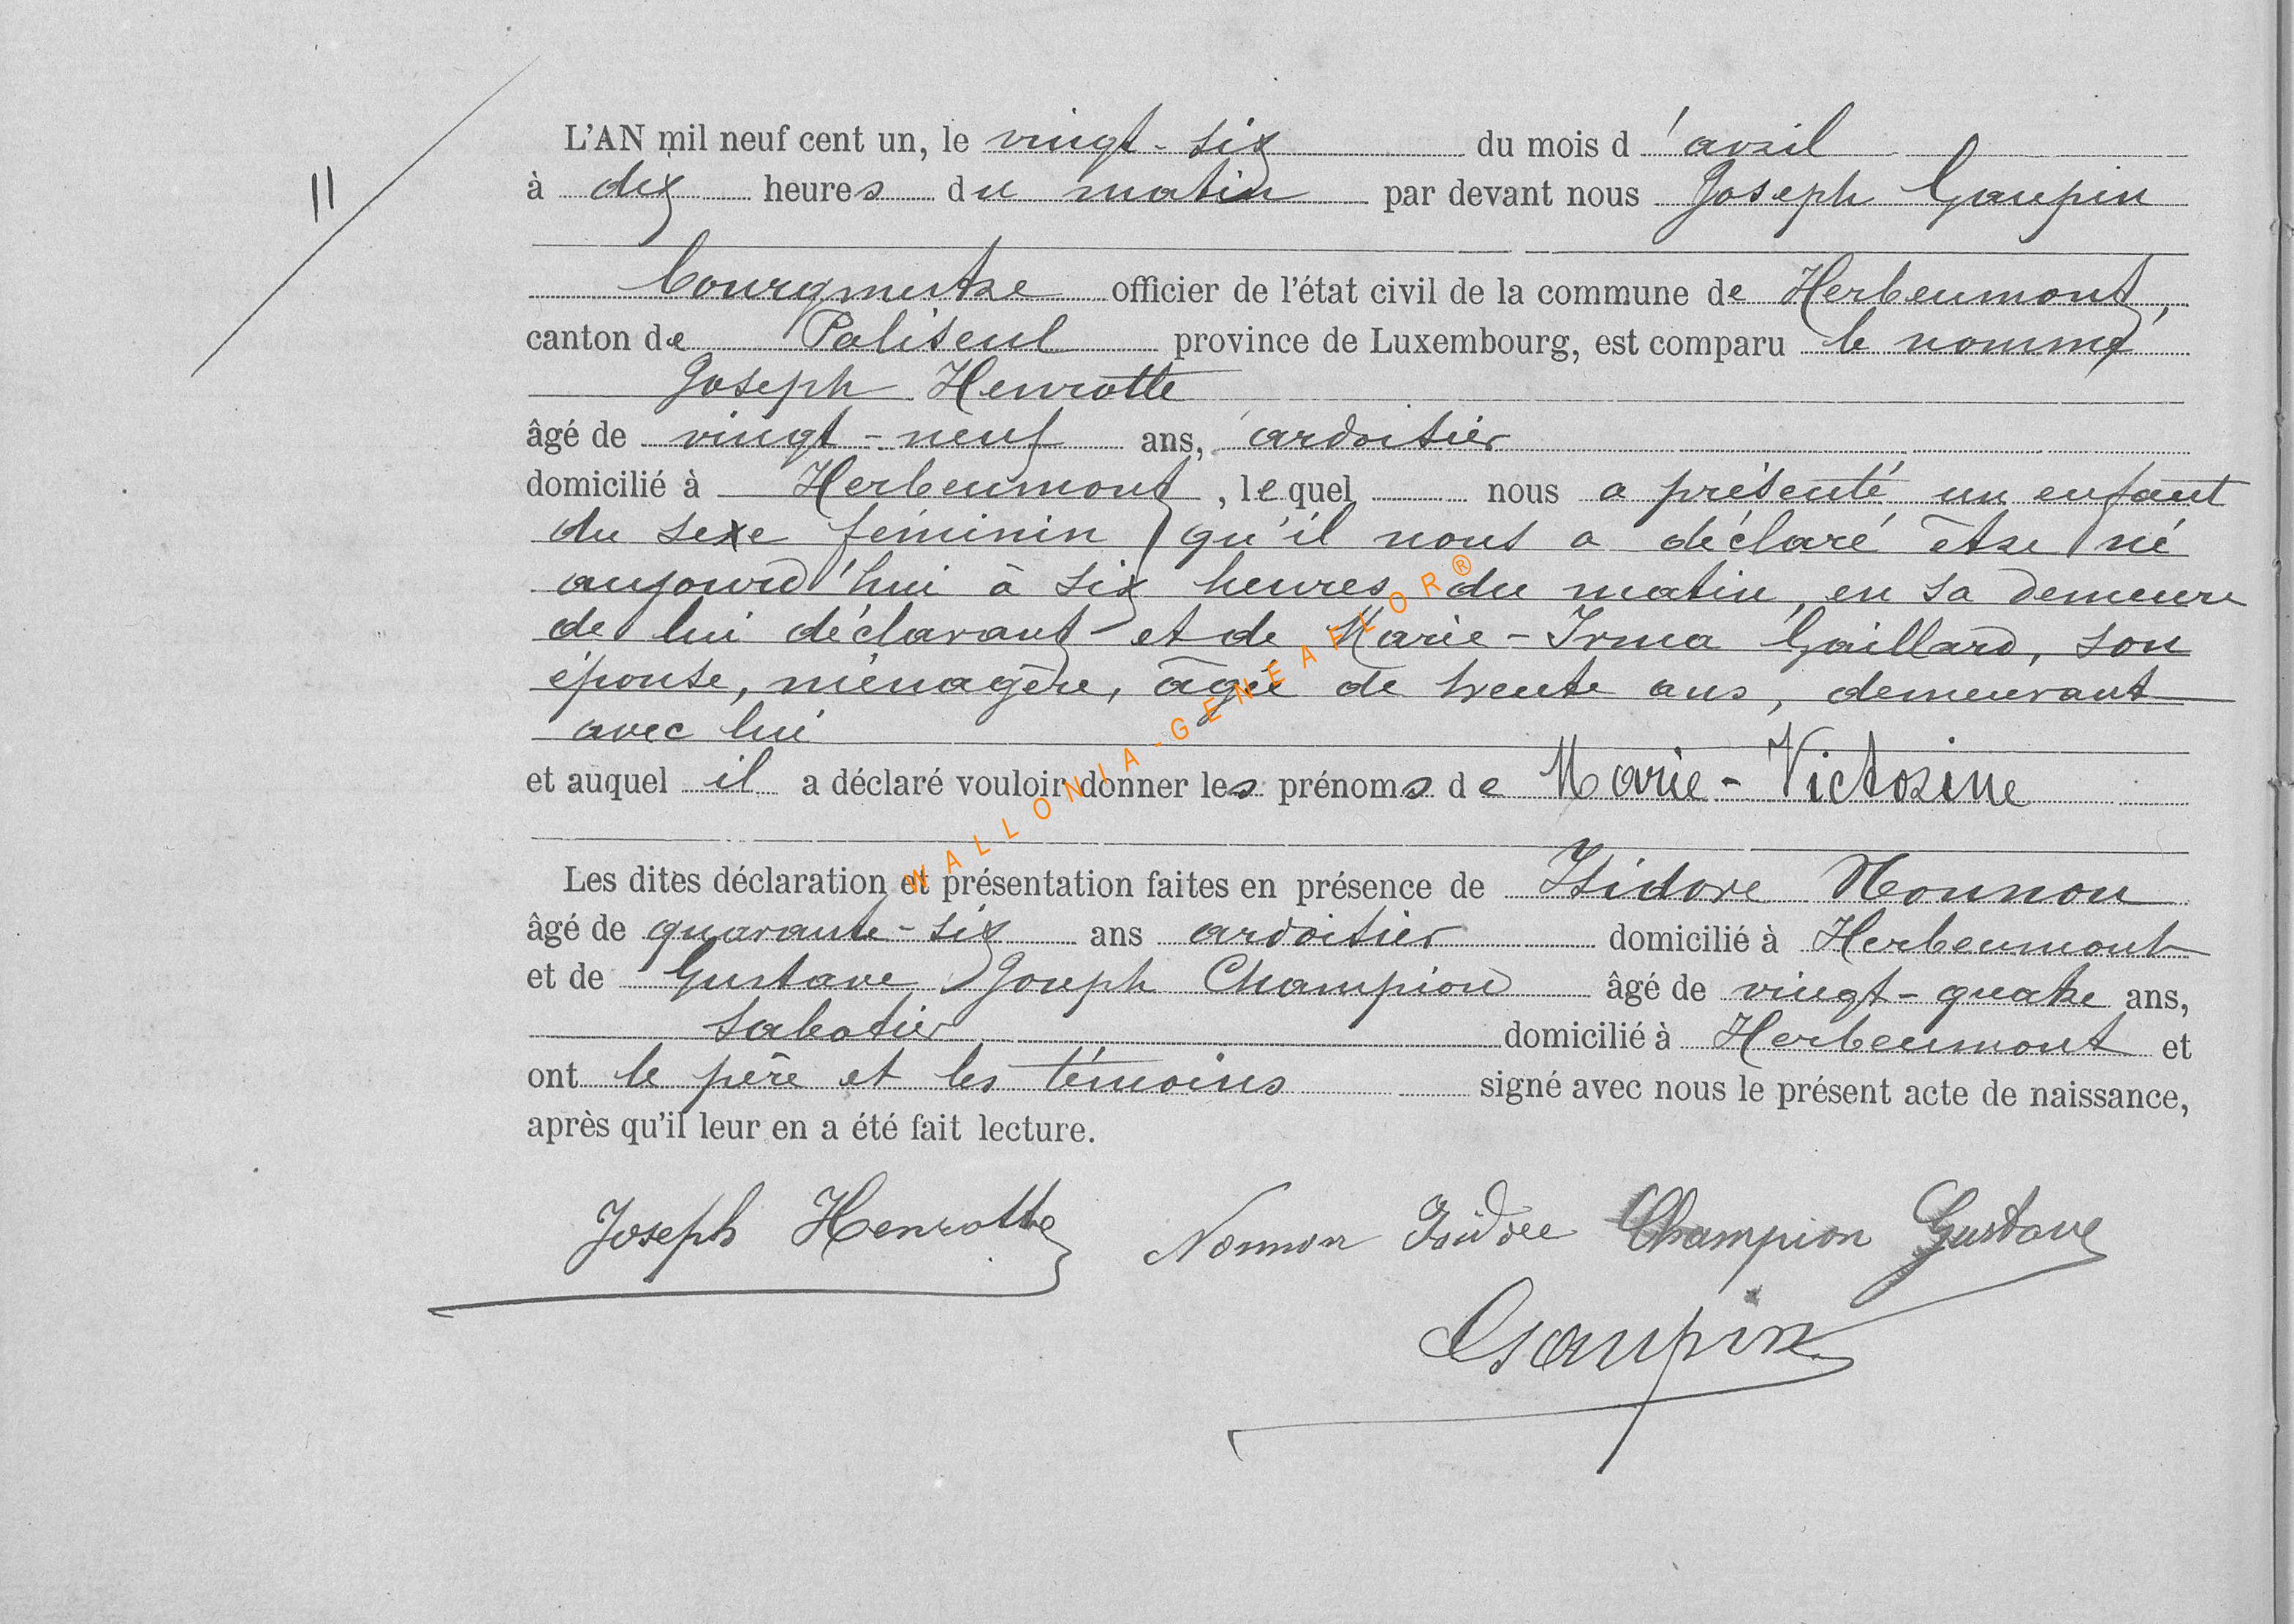 L'AN mil neuf cent un, le vingt-six du mois d'avril
11
à dix heures du matin par devant nous Joseph Gaupin
bourgmestre officier de l'état civil de la commune de Herbeumont,
canton de Paliseul province de Luxembourg, est comparu le nommé
Joseph Henrotte
âgé de vingt-neuf ans, ardoisier
domicilié à Herbeumont, lequel nous a présenté un enfant
du sexe féminin qu'il nous a déclaré être né
aujourd'hui à six heures du matin, en sa demeure
de lui déclarant et de Marie-Irma Gaillard, son
épouse, ménagère, âgée de trente ans, demeurant
avec lui
et auquel il a déclaré vouloir donner les prénoms de Marie-Victorine
Les dites déclaration et présentation faites en présence de Isidore Nonnon
âgé de quarante-six ans ardoisier domicilié à Herbeumont
et de Gustave Joseph Champion âgé de vingt-quatre ans,
sabotier domicilié à Herbeumont et
ont le père et les témoins signé avec nous le présent acte de naissance,
après qu'il leur en a été fait lecture.
Joseph Henrotte Nonnon Isidore Champion Gustave
Gaupin
WALLONIA-GENEAFLOR®